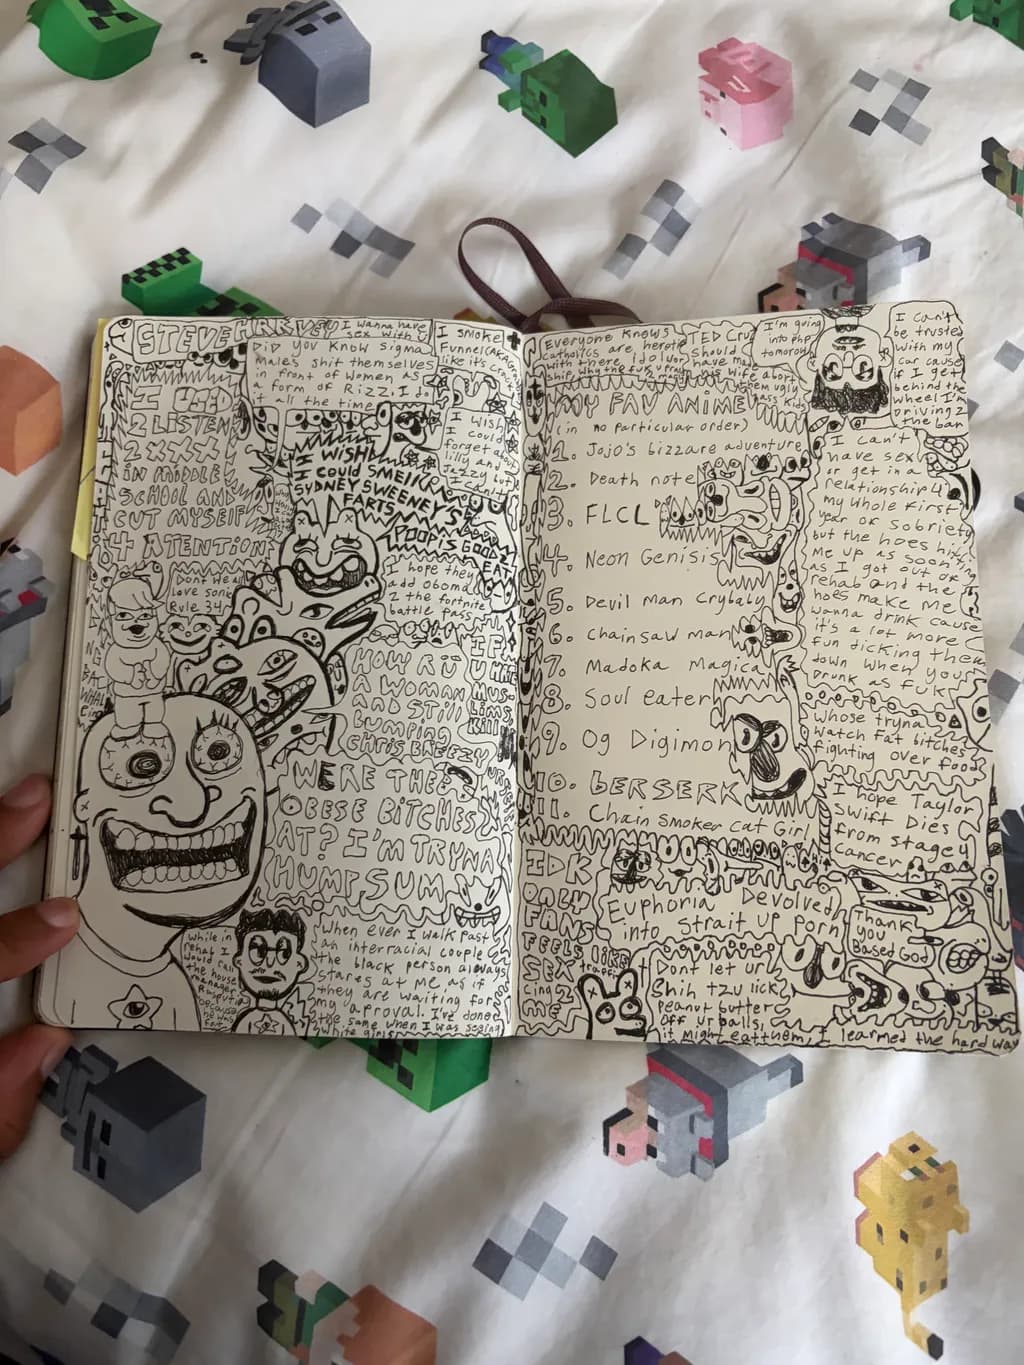 STEVE HARVEY
I wanna have
sex with U
Did you know sigma
males shit themselves
in front of women as
a form of Rizz, I do
it all the time
I smoke
Funnel
like it's crack
I USED
2 LISTEN
2 XXX
IN MIDDLE
SCHOOL AND
CUT MYSELF
4 ATENTION
I WISH
I could SMELL
SYDNEY SWEENEY'S
FARTS
I
wish
I could
forget about
lilly and
Jazzy but
I can't
POOP IS GOOD 2 EAT
I hope they
add Obama
2 the fortnite
battle pass
love sonic
Rule 34
HOW R U
A WOMAN
AND STILL
BUMPING
CHRIS BREEZY
WERE THE
OBESE BITCHES
AT? I'M TRYNA
HUMP SUM
while in
rehab I
would call
the house
manager
Rasputia
When ever I walk past
an interracial couple
the black person always
stares at me as if
they are waiting for
my aproval. I've done
the same when I was seeing
white girls
Everyone knows
Catholics are
TED Cruz
Should
have
his wife abort
them ugly
ass kids
I'm going
into php
tomorow
I can't
be trusted
with my
car cause
if I get
behind the
wheel I'm
Driving 2
the bar
MY FAV ANIME
(in no particular order)
1. Jojo's bizzare adventure
2. Death note
3. FLCL
4. Neon Genisis
5. Devil man Crybaby
6. Chainsaw man
7. Madoka Magica
8. Soul eater
9. Og Digimon
10. BERSERK
11. Chain smoker cat Girl
I can't
have sex
or get in a
relationship 4
my whole first
year of sobriety
but the hoes hit
me up as soon
as I got out of
rehab and the
hoes make me
wanna drink cause
it's a lot more
fun dicking them
down when your
drunk as fuk
Whose tryna
watch Fat bitches
fighting over food
I hope Taylor
Swift Dies
from stage 4
cancer
IDK
ONLY
FANS
FEELS LIKE
SEX
trafficing
2
ME
Euphoria Devolved
into Strait up Porn
Thank
you
Based God
Dont let ur
Shih tzu lick
peanut butter
off ur balls,
it might eat them, I learned the hard way